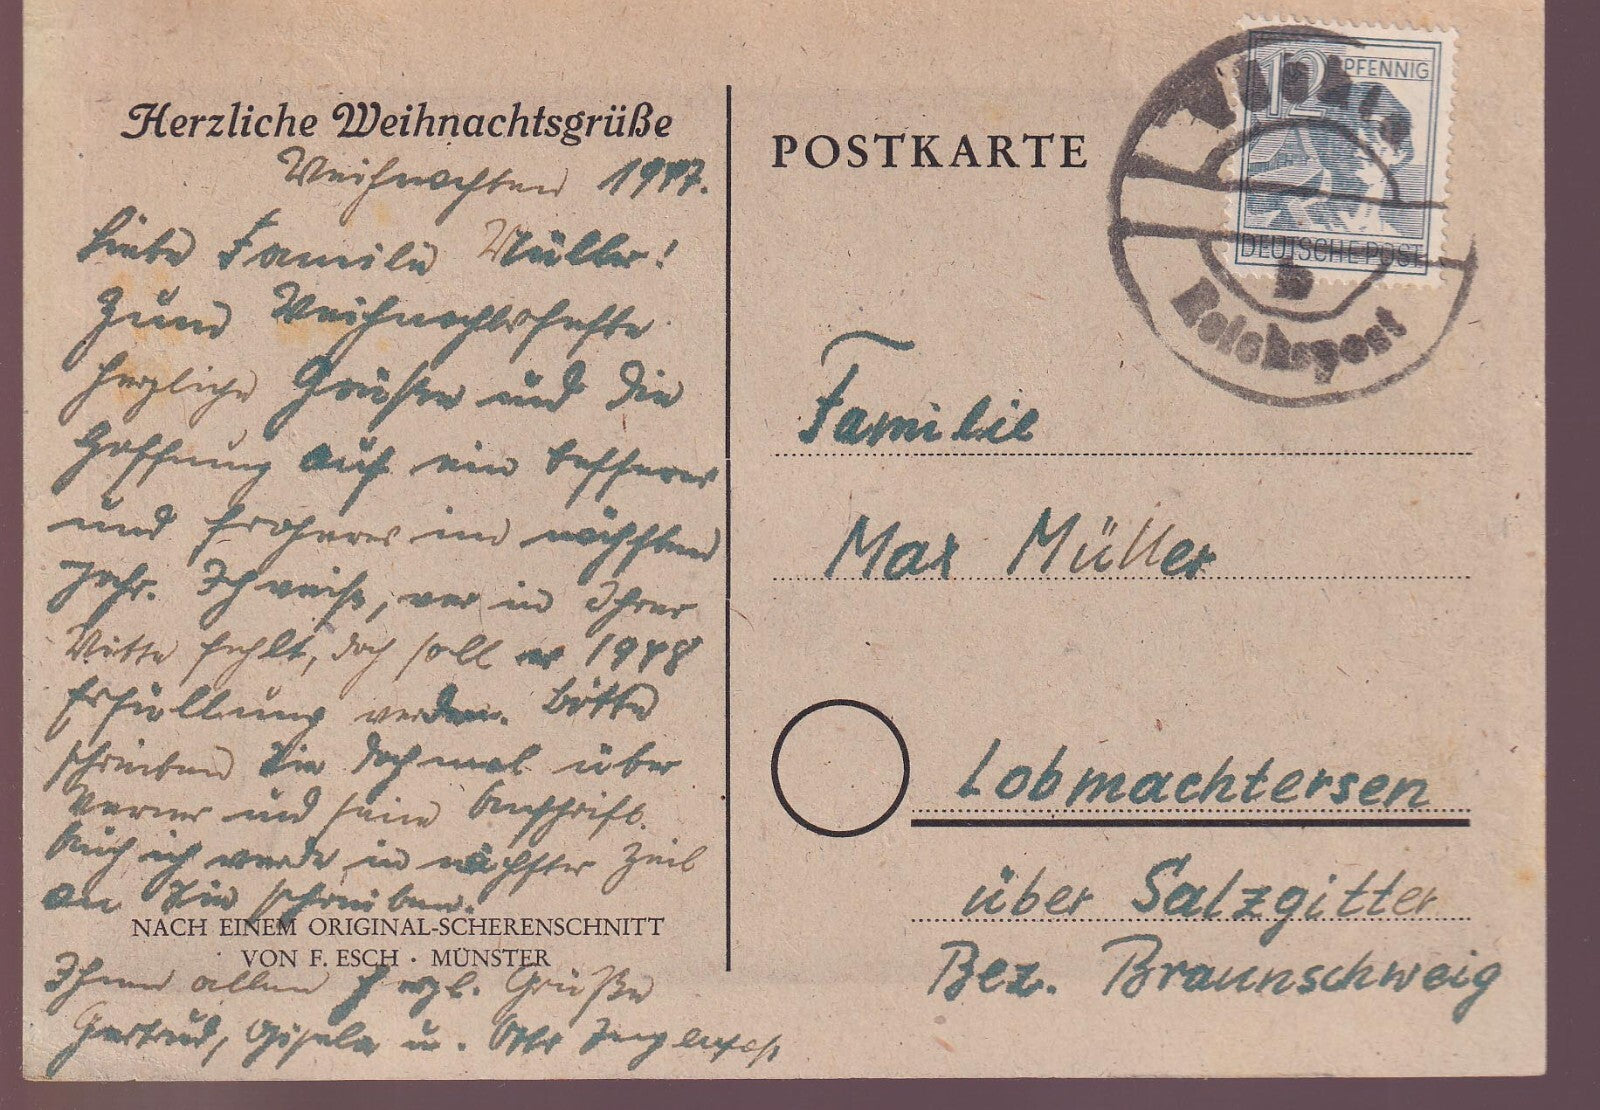 Herzliche Weihnachtsgrüße
Weihnachten 1947.
Liebe Familie Müller!
Zum Weihnachtsfeste
herzliche Grüße und die
Hoffnung auf ein besseres
und froheres im nächsten
Jahr. Ich weiß, wer in Ihrer
Mitte fehlt, doch soll es 1948
Erfüllung werden. Bitte
schreiben Sie doch mal über
Werner und seine Anschrift.
Auch ich werde in nächster Zeit
an Sie schreiben.
NACH EINEM ORIGINAL-SCHERENSCHNITT
VON F. ESCH · MÜNSTER
Ihnen allen herzl. Grüße
Gertrud, Gisela u. Otto
POSTKARTE
12 PFENNIG
DEUTSCHE POST
b
Reichspost
Familie
Max Müller
Lobmachtersen
über Salzgitter
Bez. Braunschweig